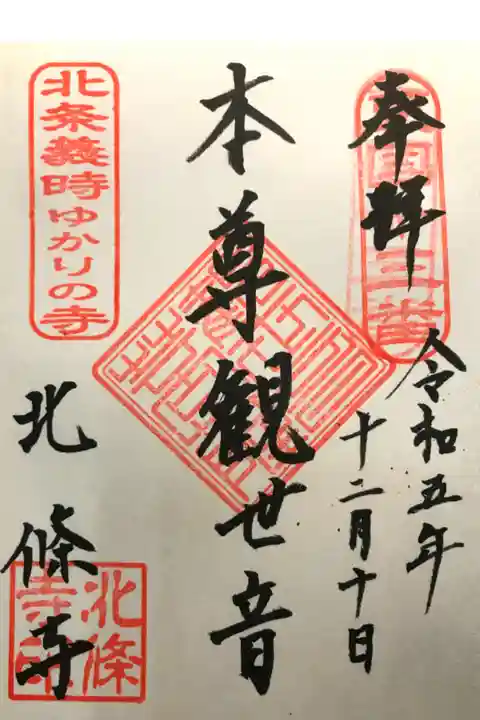 奉拝
令和五年
十二月十日
本尊観世音
北条義時ゆかりの寺
北條寺
北條寺印